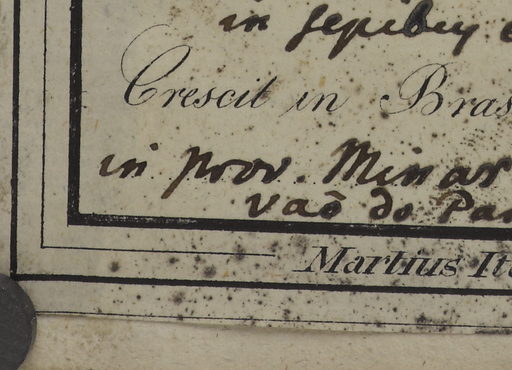 in sepibus
Crescit in Bras
in prov. Minar
Vaō do Par
Martius It